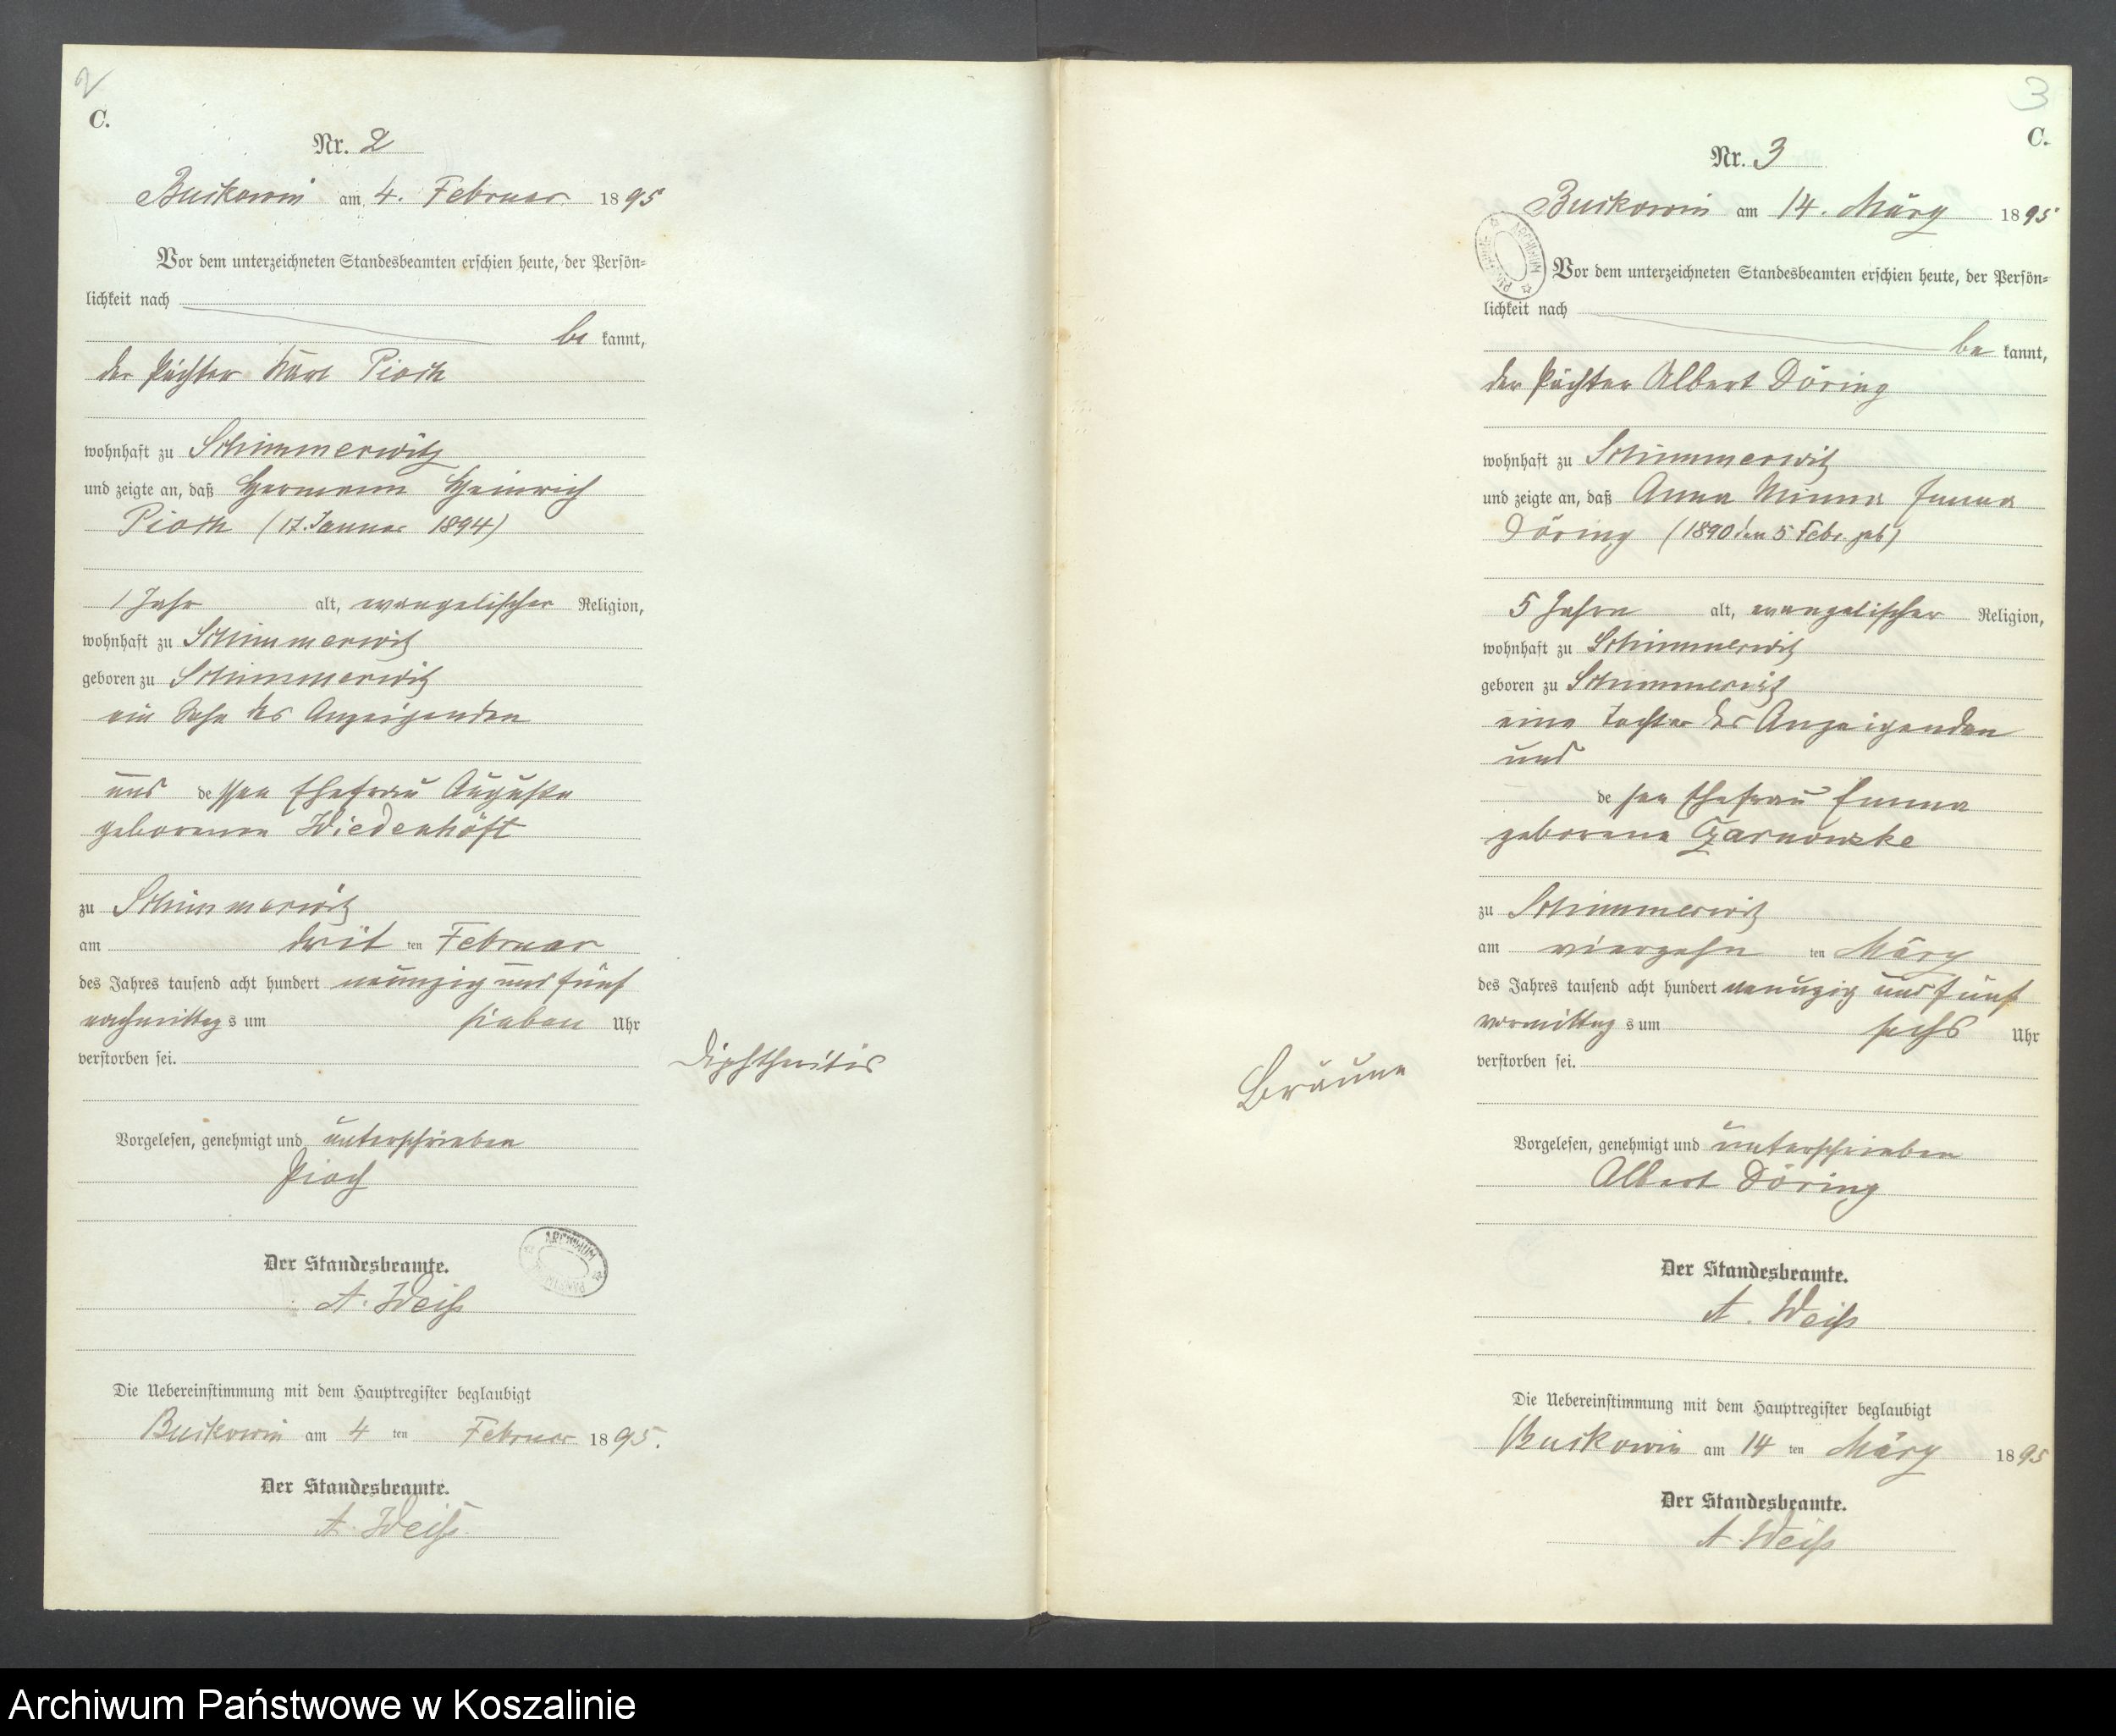 2
C.
Nr. 2
Buckowin am 4. Februar 1895
Vor dem unterzeichneten Standesbeamten erschien heute, der Persön-
lichkeit nach
be kannt,
der Pächter Karl Pioch
wohnhaft zu Schimmerwitz
und zeigte an, daß Hermann Heinrich
Pioch (17. Januar 1894)
1 Jahr alt, evangelischer Religion,
wohnhaft zu Schimmerwitz
geboren zu Schimmerwitz
ein Sohn des Anzeigenden
und dessen Ehefrau Auguste
geborenen Wiedenhöft
zu Schimmerwitz
am dritten Februar
des Jahres tausend acht hundert neunzig und fünf
nachmittags um sieben Uhr
verstorben sei.
Diphtheritis
Vorgelesen, genehmigt und unterschrieben
Pioch
Der Standesbeamte.
A. Weiß
Die Uebereinstimmung mit dem Hauptregister beglaubigt
Buckowin am 4 ten Februar 1895.
Der Standesbeamte.
A. Weiß
3
C.
Nr. 3
Buckowin am 14. März 1895
Vor dem unterzeichneten Standesbeamten erschien heute, der Persön-
lichkeit nach
be kannt,
der Pächter Albert Döring
wohnhaft zu Schimmerwitz
und zeigte an, daß Anna Minna Emma
Döring (1890 den 5 Febr. geb)
5 Jahre alt, evangelischer Religion,
wohnhaft zu Schimmerwitz
geboren zu Schimmerwitz
eine Tochter des Anzeigenden
und
dessen Ehefrau Emma
geborene Czarnowske
zu Schimmerwitz
am vierzehn ten März
des Jahres tausend acht hundert neunzig und fünf
vormittags um sechs Uhr
verstorben sei.
Bräune
Vorgelesen, genehmigt und unterschrieben
Albert Döring
Der Standesbeamte.
A. Weiß
Die Uebereinstimmung mit dem Hauptregister beglaubigt
Buckowin am 14 ten März 1895
Der Standesbeamte.
A. Weiß
Archiwum Państwowe w Koszalinie